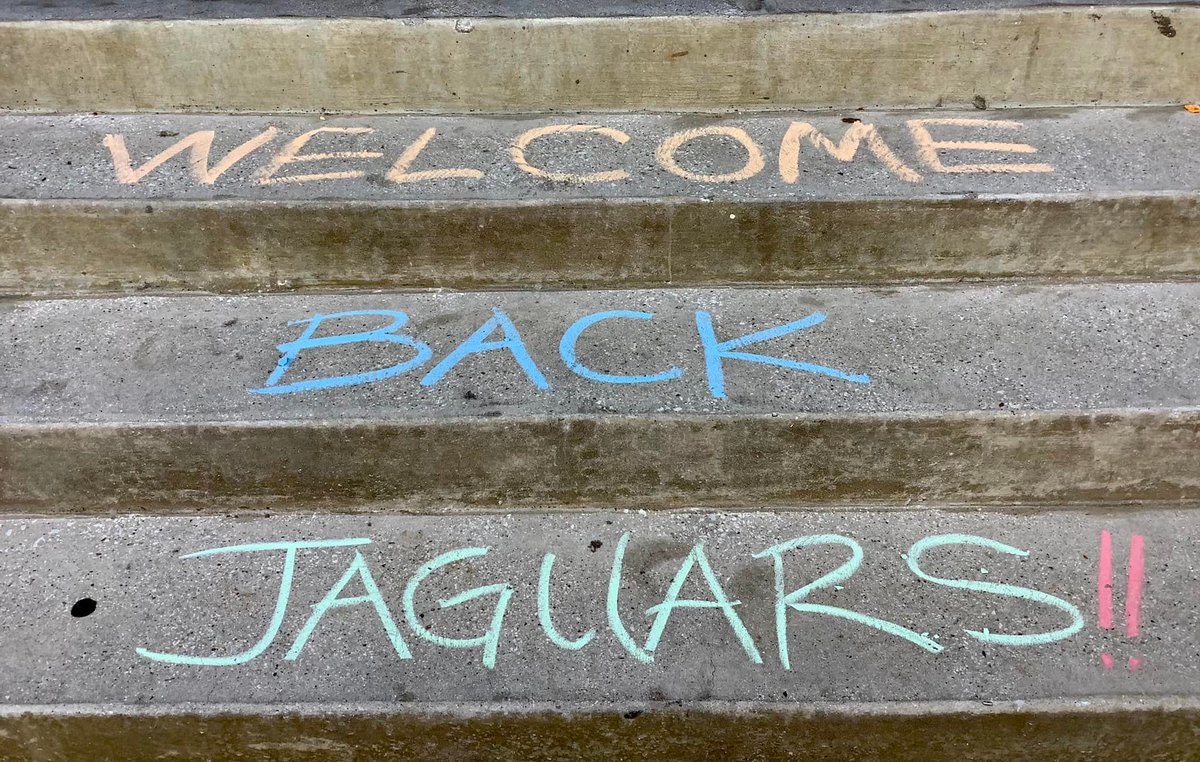 WELCOME
BACK
JAGUARS!!